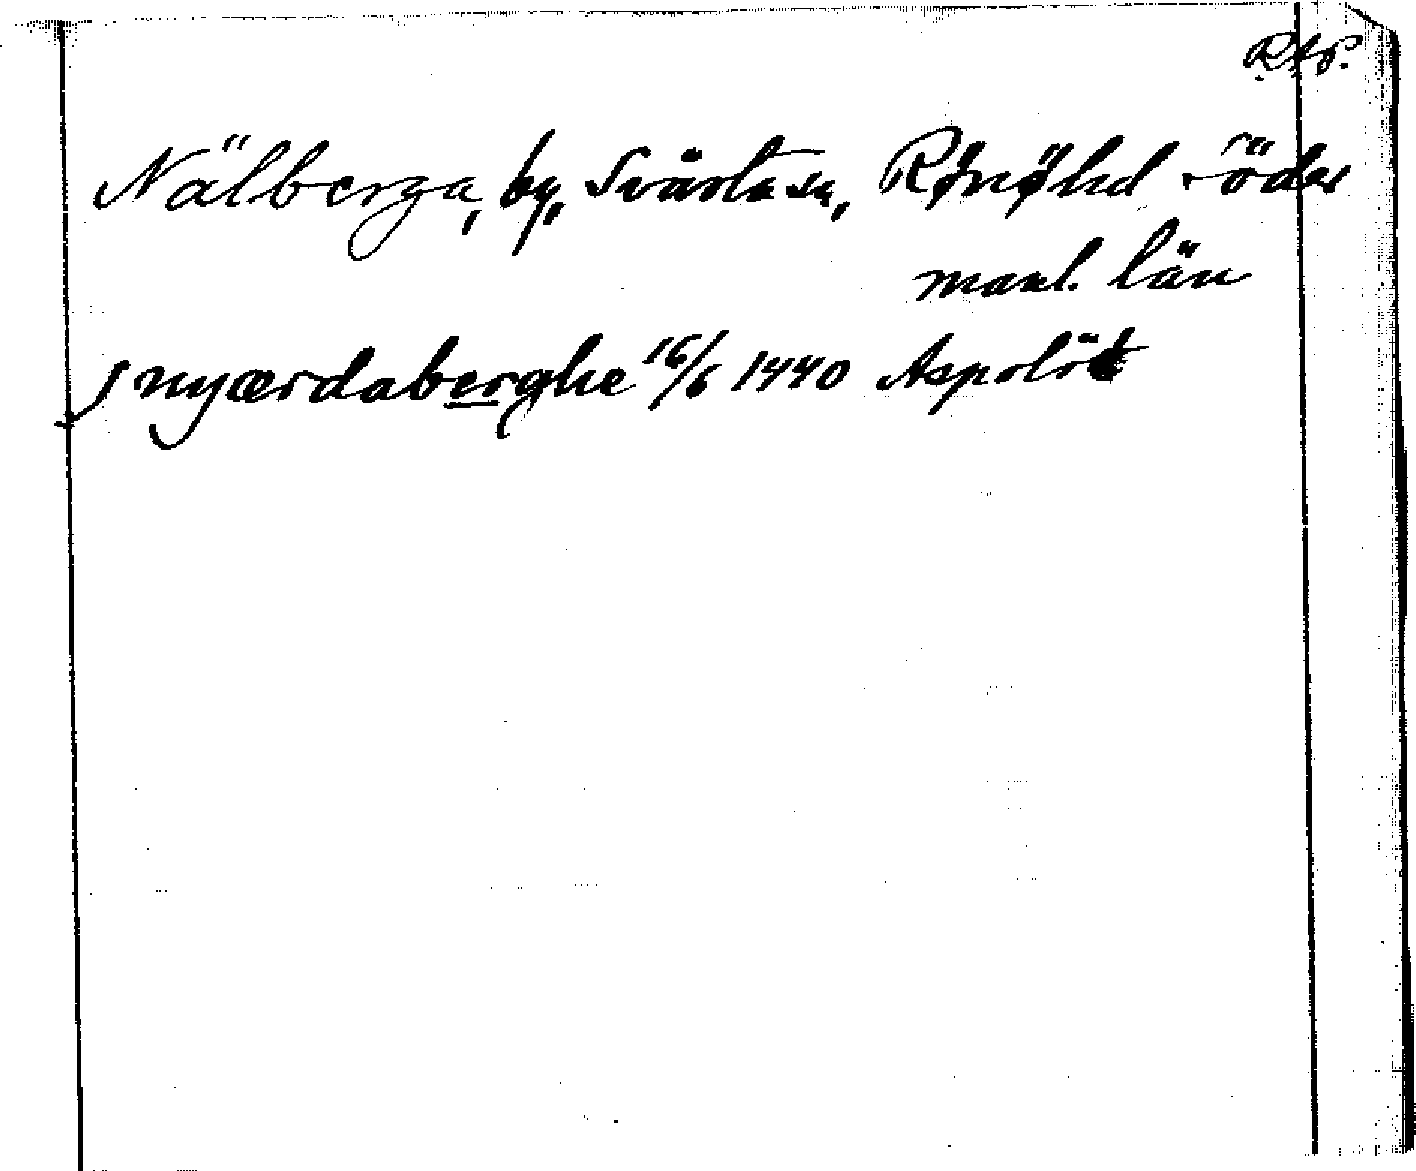 RAP.
Nälberga, by, Svärta sn, Rönö hd Söder
manl. län
J nyærdaberghe 16/6 1440 Aspolöt